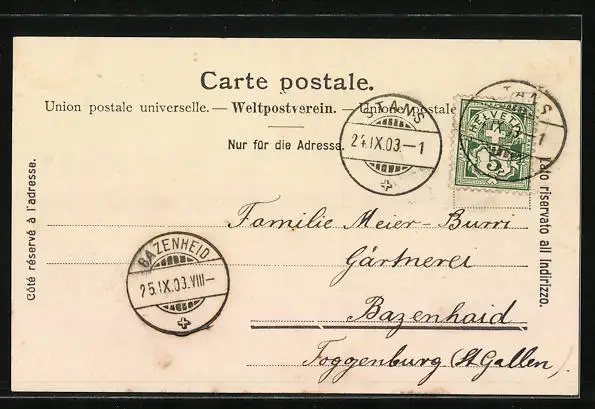 Carte postale.
Union postale universelle. — Weltpostverein. — Unione postale
Nur für die Adresse.
STANS
24.IX.03.—1
STANS
IX.03—1
HELVETIA
5
Côté réservé à l'adresse.
Lato riservato all Indirizzo.
Familie Meier-Burri
Gärtnerei
Bazenhaid
Toggenburg (St. Gallen).
BAZENHEID
25.IX.03.VIII—